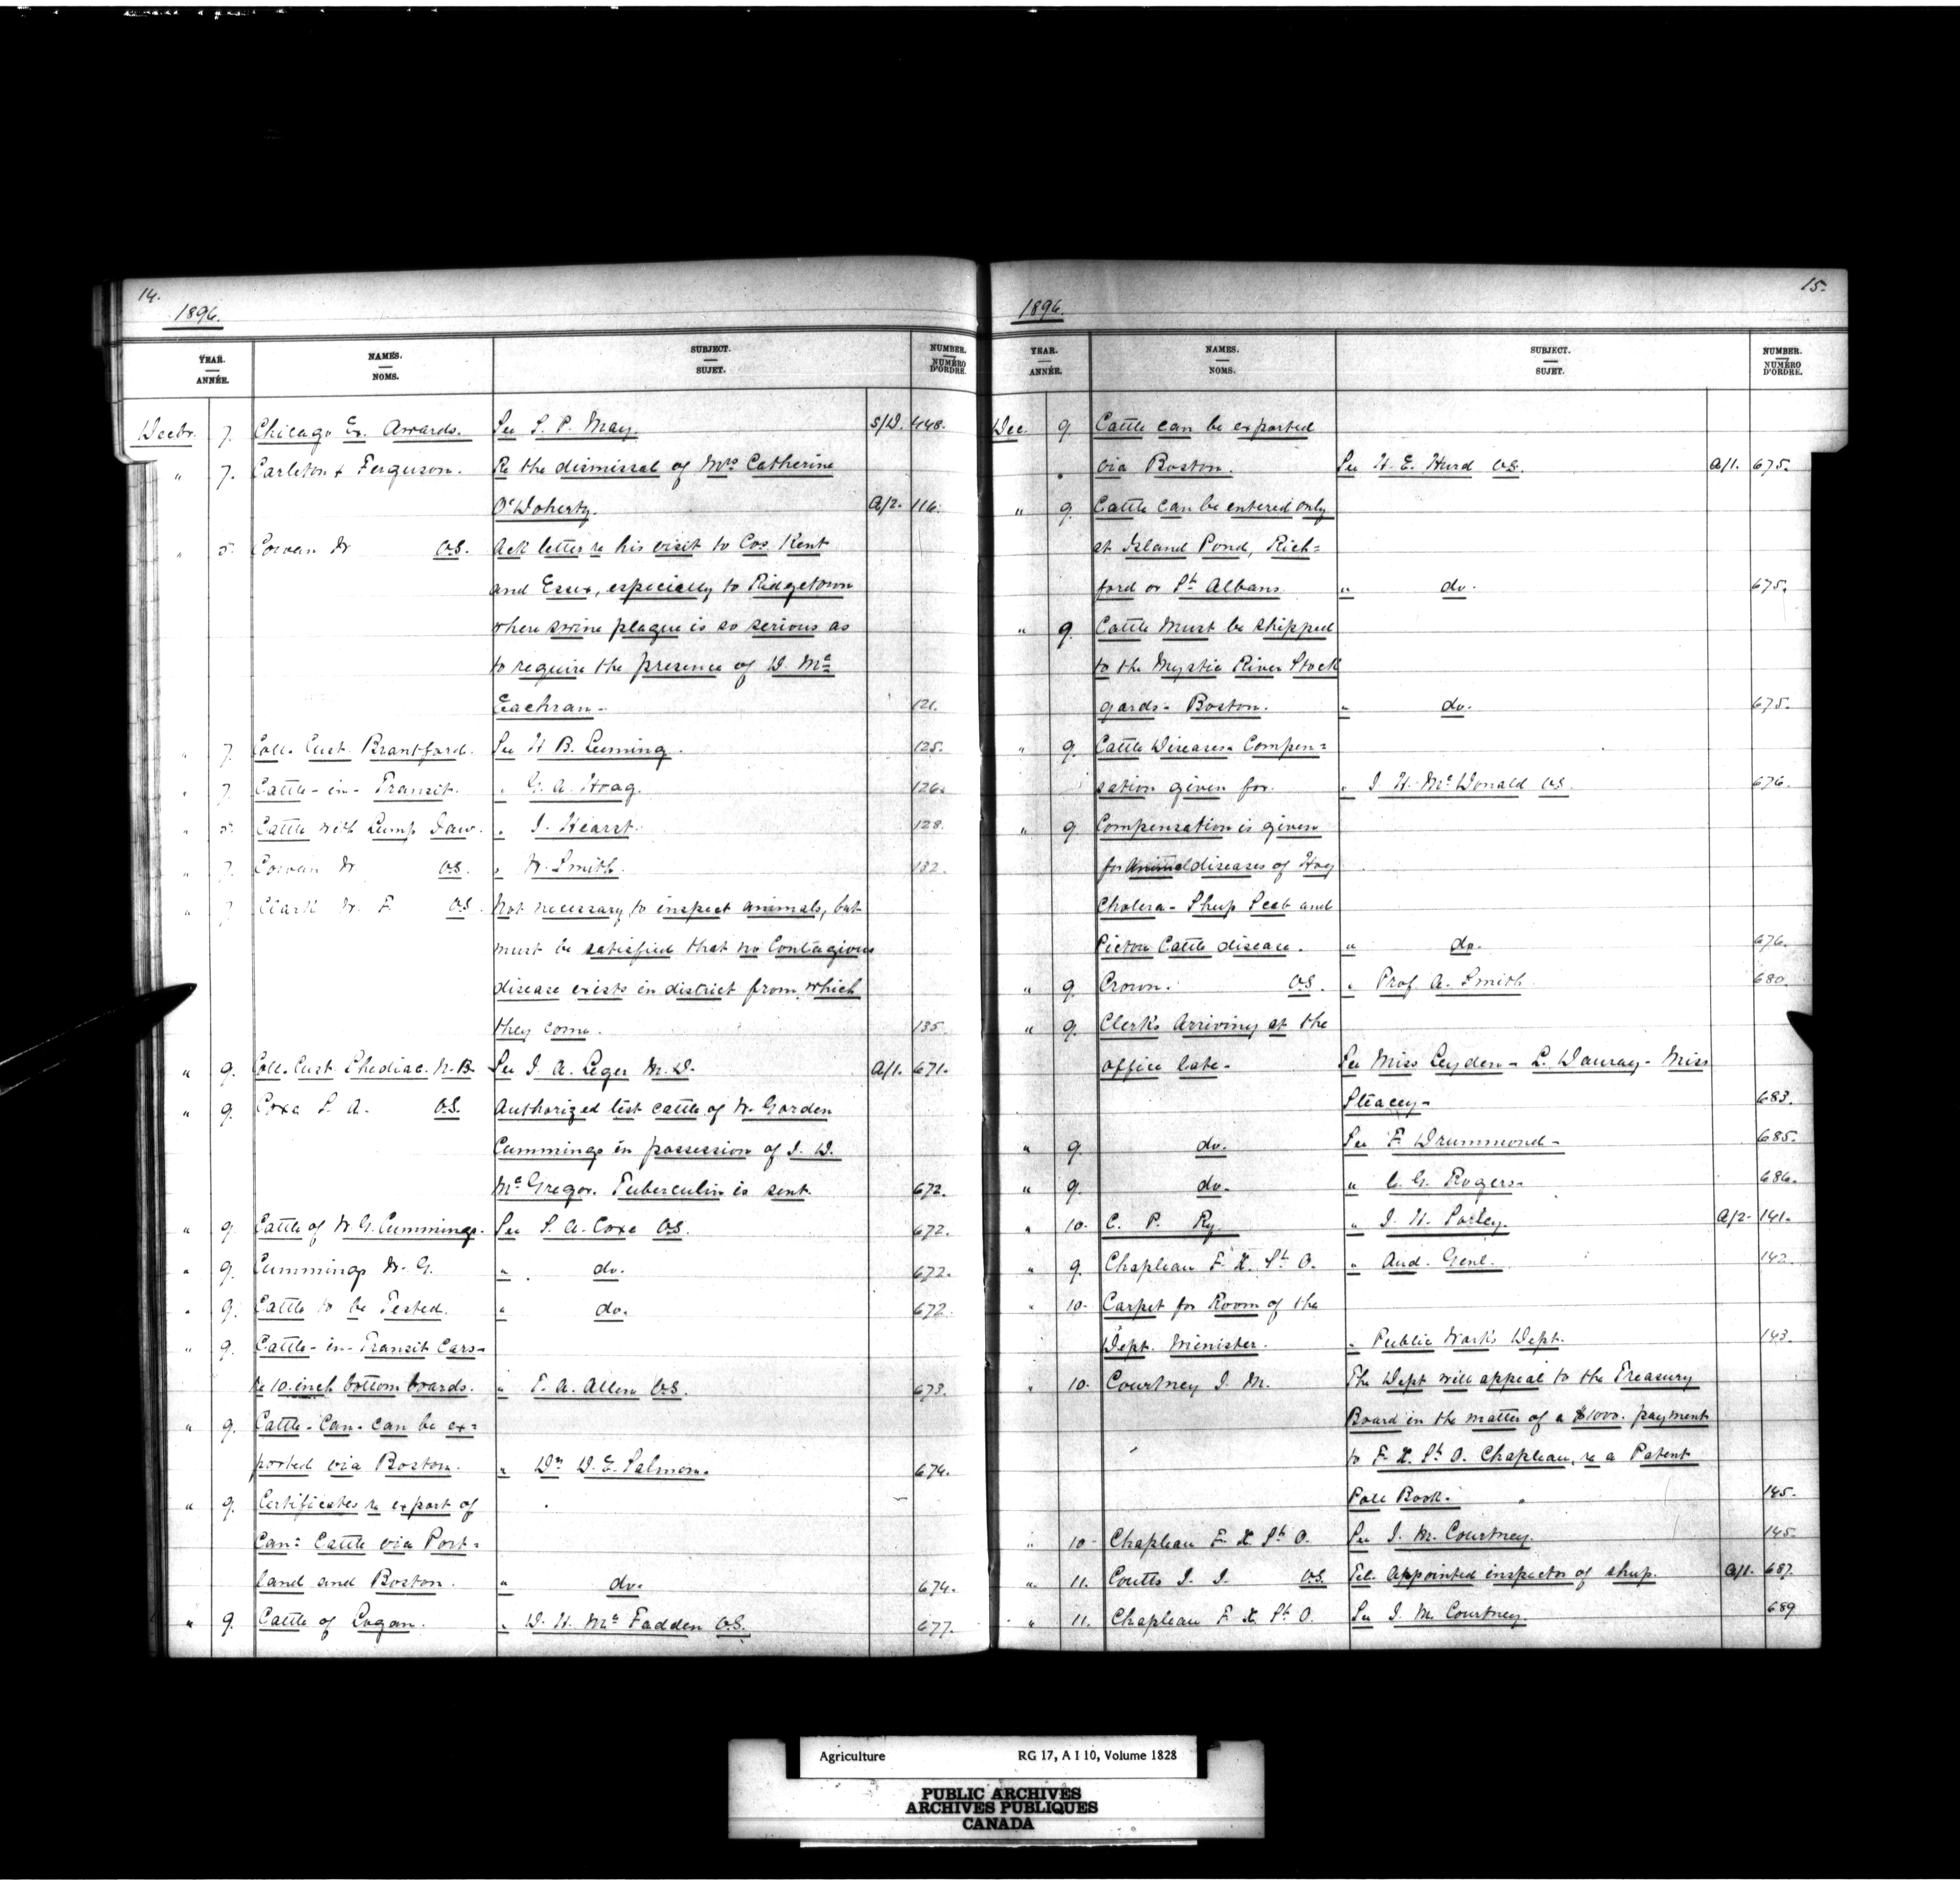 14.
1896.
YEAR. ANNÉE. NAMES. NOMS. SUBJECT. SUJET. NUMBER. NUMÉRO D'ORDRE.
Decbr. 7. Chicago Ex. Awards. See S. P. May. S/D. 448.
" 7. Carleton & Ferguson. Re the dismissal of Mrs Catherine
O'Doherty. A/2. 116.
" 5. Cowan W V.S. Ack letter re his visit to Cos Kent
and Essex, especially to Ridgetown
where swine plague is so serious as
to require the presence of D. Mc
Eachran- 121.
" 7. Coll. Cust. Brantford. See H B. Leeming. 125.
" 7. Cattle-in-Transit. " G. A. Hoag. 126.
" 5. Cattle with Lump Jaw. " J. Hearst. 128.
" 7. Cowan W V.S. " W. Smith. 132.
" 7. Clark W. F. V.S. Not necessary to inspect animals, but
must be satisfied that no Contagious
disease exists in district from which
they come. 135.
" 9. Coll. Cust. Shediac. N.B. See J. A. Leger M.D. A/1. 671.
" 9. Coxe S. A. V.S. Authorized test cattle of W. Gordon
Cummings in possession of J. D.
McGregor. Tuberculin is sent. 672.
" 9. Cattle of W G. Cummings. See S. A. Coxe V.S. 672.
" 9. Cummings W. G. " do. 672.
" 9. Cattle to be Tested. " do. 672.
" 9. Cattle-in-Transit Cars-
re 10 inch bottom boards. " T. A. Allen V.S. 673.
" 9. Cattle-Can-can be ex=
ported via Boston. " Dr D. E. Salmon. 674.
" 9. Certificates re export of
Can= Cattle via Port=
land and Boston. " do. 674.
" 9. Cattle of Logan. " D. H. McFadden V.S. 677.
15.
1896.
YEAR. ANNÉE. NAMES. NOMS. SUBJECT. SUJET. NUMBER. NUMÉRO D'ORDRE.
Dec. 9. Cattle can be exported
via Boston. See H. E. Hurd V.S. A/1. 675.
" 9. Cattle can be entered only
at Island Pond, Rich=
ford or St Albans " do. 675.
" 9. Cattle must be shipped
to the Mystic River Stock
yards- Boston. " do. 675.
" 9. Cattle Diseases- Compen=
sation given for. " J H. McDonald V.S. 676.
" 9. Compensation is given
for diseases of Hog
Cholera- Sheep Scab and
Pictou Cattle disease. " do. 676.
" 9. Crown. V.S. " Prof A. Smith 680.
" 9. Clerks arriving at the
office late- See Miss Leyden- L. Dauray- Miss
Steacey- 683.
" 9. do. See F. Drummond- 685.
" 9. do. " C. G. Rogers- 686.
" 10. C. P. Ry. " J. H. A/2- 141.
" 9. Chapleau F. X. St O. " Aud. Genl. 142.
" 10. Carpet for Room of the
Dept. Minister. " Public Works Dept. 143.
" 10. Courtney J. M. The Dept will appeal to the Treasury
Board in the matter of a $1000. payment
to F. X. St O. Chapleau, re a Patent
Poll Book. 145.
" 10- Chapleau F X St O. See J. M. Courtney. 145.
" 11. Coutts J. J. V.S. Tel. Appointed inspector of sheep. A/1. 687.
" 11. Chapleau F X St O. See J. M. Courtney. 689
Agriculture RG 17, A I 10, Volume 1828
PUBLIC ARCHIVES
ARCHIVES PUBLIQUES
CANADA